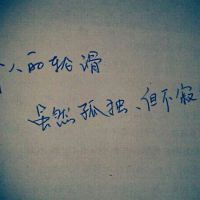 个人的轮滑
虽然孤独、但不寂